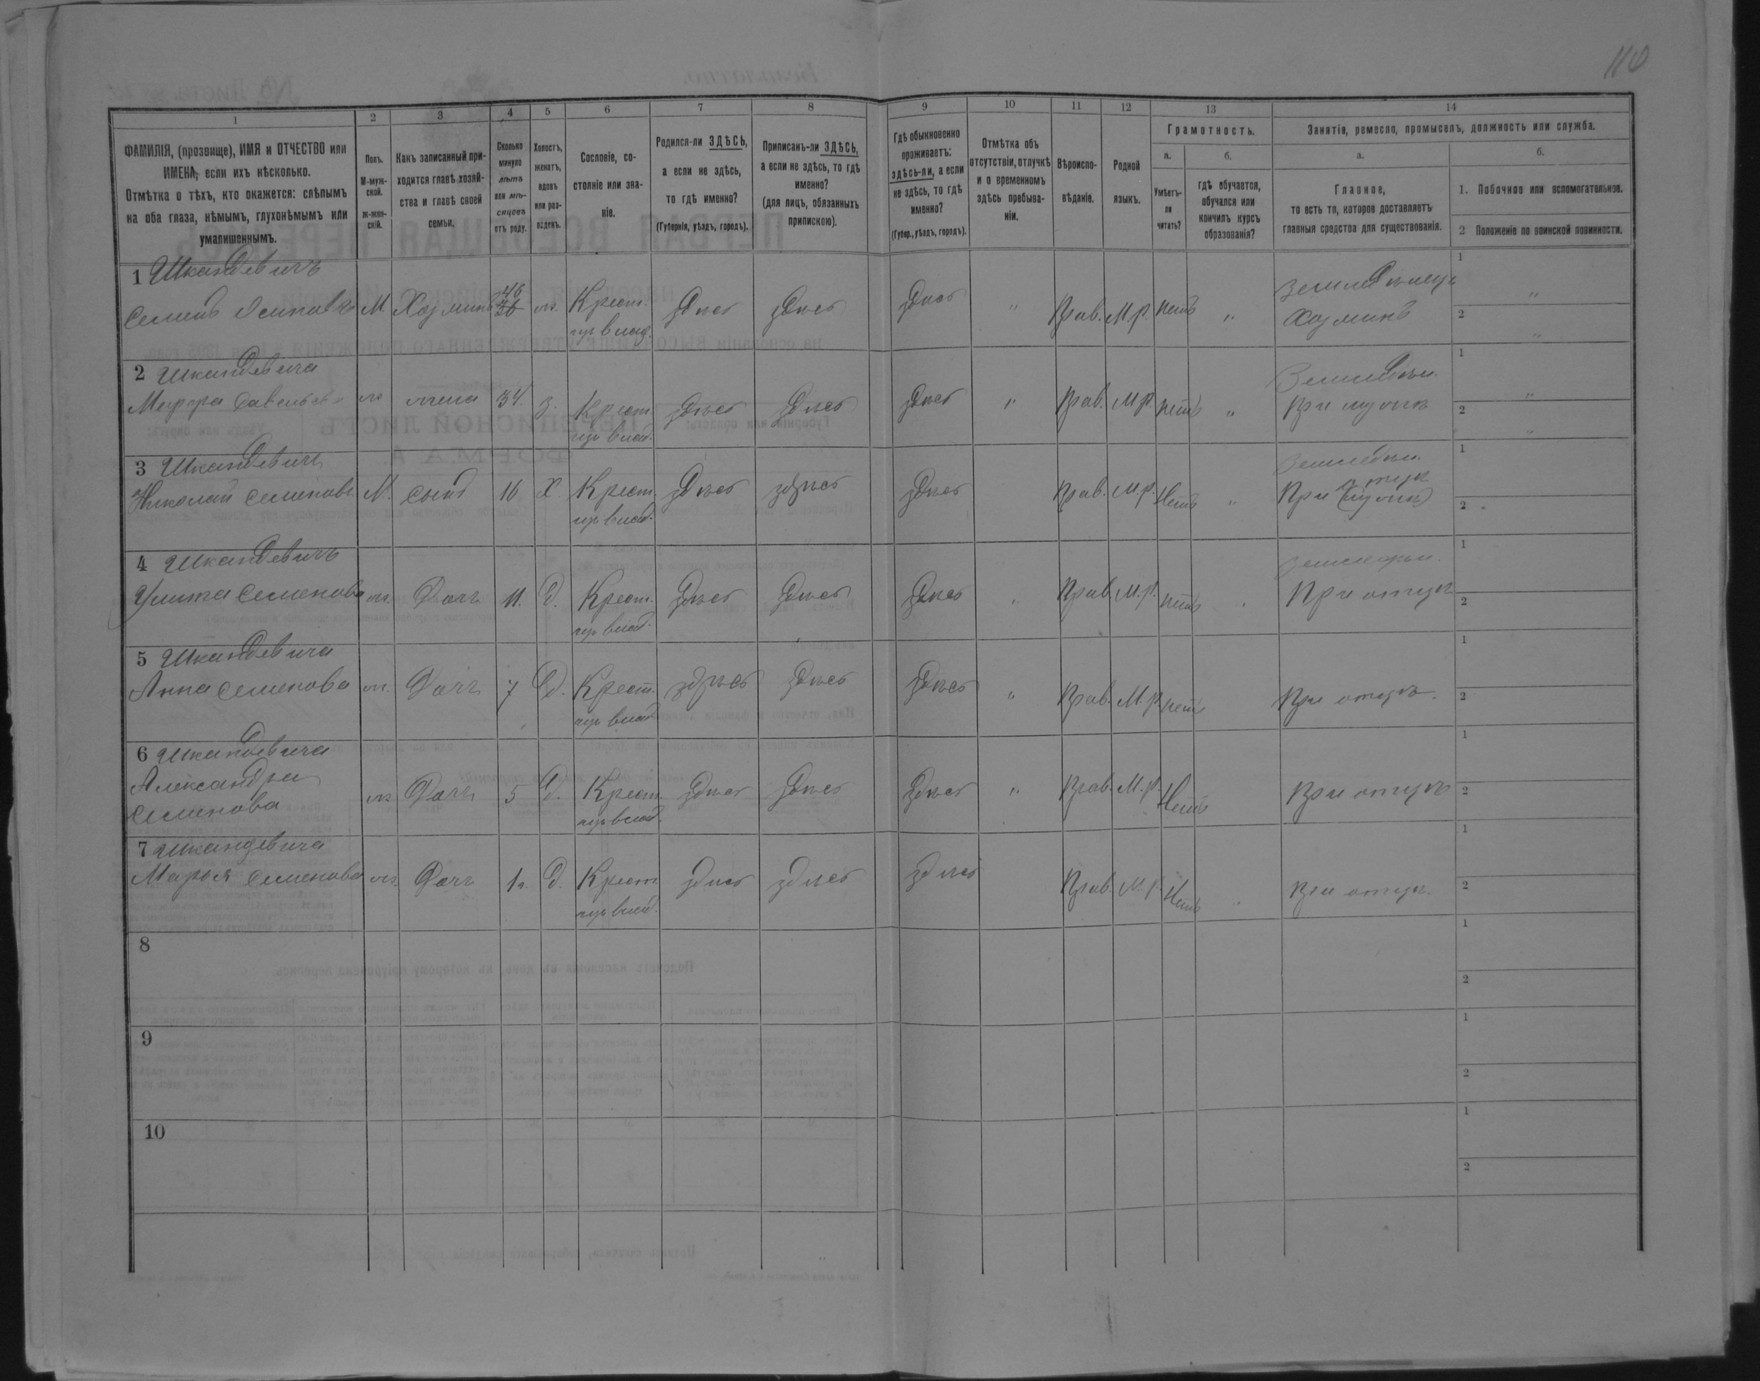 110
1 2 3 4 5 6 7 8 9 10 11 12 13 14
ФАМИЛІЯ, (прозвище), ИМЯ и ОТЧЕСТВО или ИМЕНА, если ихъ нѣсколько.
Отмѣтка о тѣхъ, кто окажется: слѣпымъ на оба глаза, нѣмымъ, глухонѣмымъ или умалишеннымъ.
Полъ.
М-муж-
ской.
ж-жен-
скій.
Какъ записанный при-
ходится главѣ хозяй-
ства и главѣ своей
семьи.
Сколько
минуло
лѣтъ
или мѣ-
сяцевъ
отъ роду.
Холостъ,
женатъ,
вдовъ
или раз-
веденъ.
Сословіе, со-
стояніе или зва-
ніе.
Родился-ли ЗДѢСЬ,
а если не здѣсь,
то гдѣ именно?
(Губернія, уѣздъ, городъ).
Приписанъ-ли ЗДѢСЬ,
а если не здѣсь, то гдѣ
именно?
(для лицъ, обязанныхъ
припискою).
Гдѣ обыкновенно
проживаетъ:
здѣсь-ли, а если
не здѣсь, то гдѣ
именно?
(Губер., уѣздъ, городъ).
Отмѣтка объ
отсутствіи, отлучкѣ
и о временномъ
здѣсь пребыва-
ніи.
Вѣроиспо-
вѣданіе.
Родной
языкъ.
Грамотность.
а.
Умѣетъ-
ли
читать?
б.
гдѣ обучается,
обучался или
кончилъ курсъ
образованія?
Занятіе, ремесло, промыселъ, должность или служба.
а.
Главное,
то есть то, которое доставляетъ
главныя средства для существованія.
б.
1. Побочное или вспомогательное.
2 Положеніе по воинской повинности.
1 Шкандевичъ
Семенъ Осиповъ М. Хозяинъ 46 ж. Крест. Здѣсь Здѣсь Здѣсь " Прав. М.р. нѣтъ " Земледѣлецъ 1 "
Хозяинъ 2 "
2 Шкандевича
ж жена 34 з. Крест. Здѣсь Здѣсь Здѣсь " Прав. М.р. нѣтъ " Земледѣл. 1 "
При мужѣ 2 "
3 Шкандевичъ
Николай Семеновъ М. сынъ 16 Х. Крест. Здѣсь здѣсь Здѣсь Прав. М.р. Нѣтъ " Земледѣл. 1
При отцѣ (мужѣ) 2
4 Шкандевичъ
Улита Семенова ж. Дочь 11. Д. Крест. Здѣсь Здѣсь Здѣсь Прав. М.р. нѣтъ Земледѣл. 1
При отцѣ 2
5 Шкандевича
Анна Семенова ж. Дочь 7 Д. Крест. здѣсь Здѣсь Здѣсь " Прав. М.р. нѣтъ При отцѣ 1
2
6 Шкандевича
Александра
Семенова ж. Дочь 5 Д. Крест. Здѣсь Здѣсь Здѣсь " Прав. М.р. Нѣтъ При отцѣ 1
2
7 Шкандевича
Марья Семенова ж. Дочь 1 Д. Крест. Здѣсь здѣсь здѣсь Прав. М.р. Нѣтъ При отцѣ 1
2
8 1
2
9 1
2
10 1
2